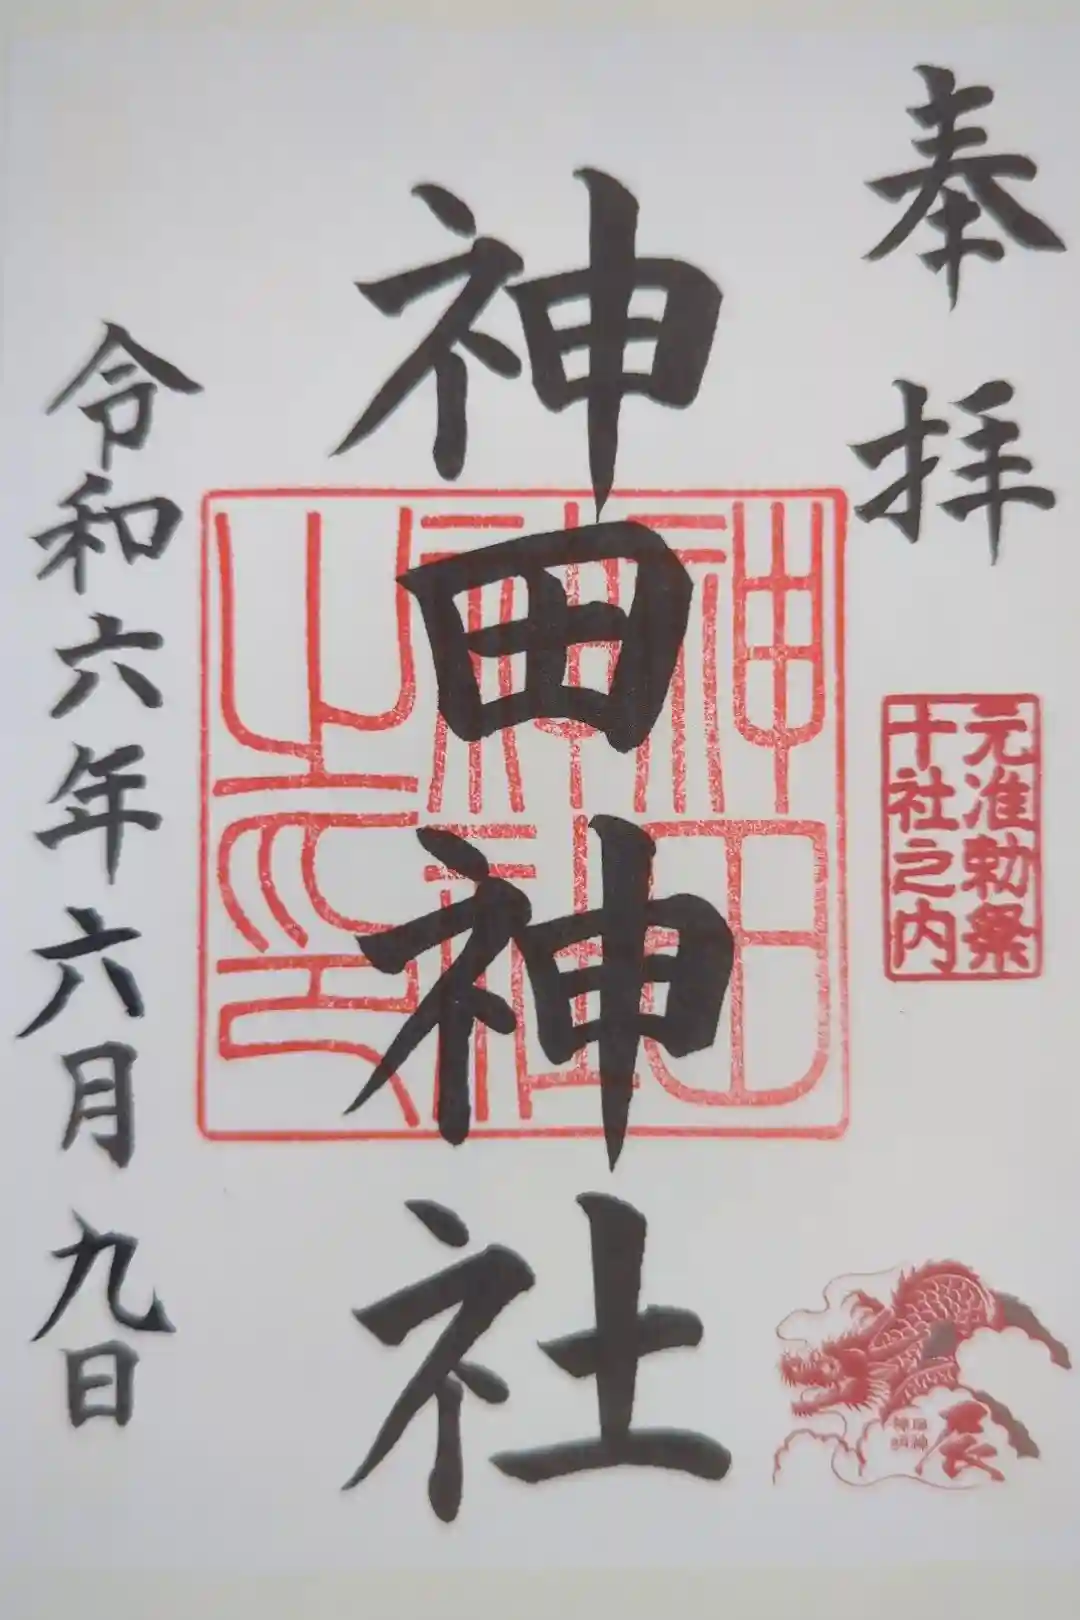 奉拝
元准勅祭
十社之内
神田神社
神田
神社
之印
令和六年六月九日
辰